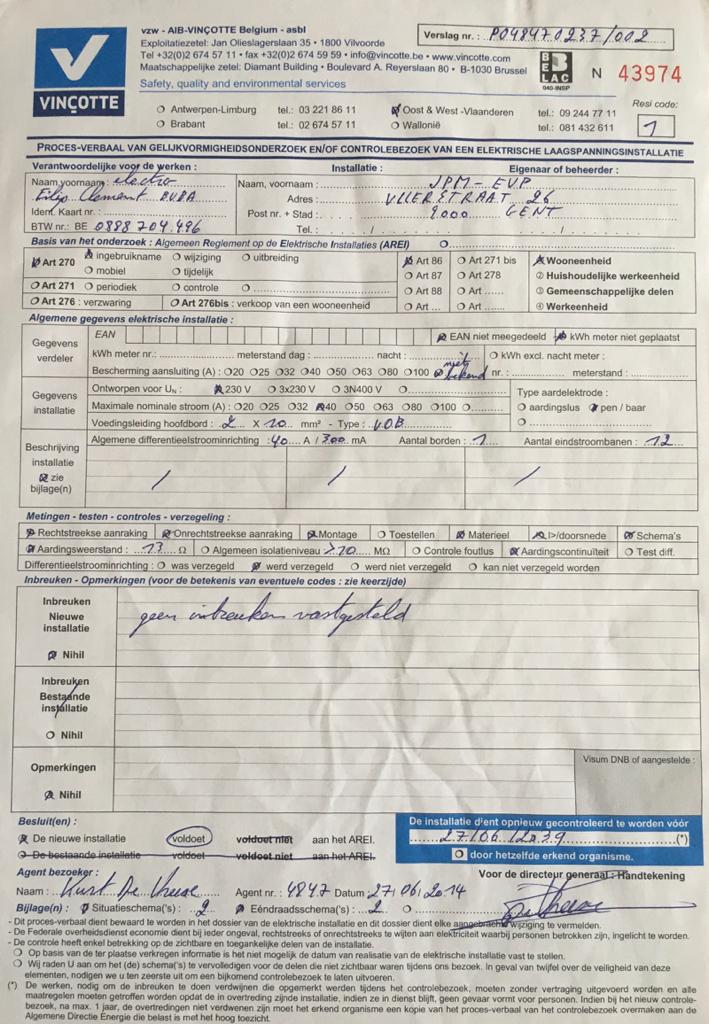 VINÇOTTE
vzw - AIB-VINÇOTTE Belgium - asbl
Exploitatiezetel: Jan Olieslagerslaan 35 • 1800 Vilvoorde
Tel +32(0)2 674 57 11 • fax +32(0)2 674 59 59 • info@vincotte.be • www.vincotte.com
Maatschappelijke zetel: Diamant Building • Boulevard A. Reyerslaan 80 • B-1030 Brussel
Safety, quality and environmental services
Verslag nr. : P048470237/002
BELAC
040-INSP
N 43974
Antwerpen-Limburg tel.: 03 221 86 11 Oost & West -Vlaanderen tel.: 09 244 77 11
Brabant tel.: 02 674 57 11 Wallonië tel.: 081 432 611
Resi code:
1
PROCES-VERBAAL VAN GELIJKVORMIGHEIDSONDERZOEK EN/OF CONTROLEBEZOEK VAN EEN ELEKTRISCHE LAAGSPANNINGSINSTALLATIE
Verantwoordelijke voor de werken : Installatie : Eigenaar of beheerder :
Naam,voornaam: electro
Filip Clement BVBA
Ident. Kaart nr. :
BTW nr.: BE 0888 704.496
Naam, voornaam : JPM - EVP
Adres : VLIERSTRAAT 26
Post nr. + Stad : 9000 GENT
Tel. : / /
Basis van het onderzoek : Algemeen Reglement op de Elektrische Installaties (AREI)
Art 270 ingebruikname wijziging uitbreiding Art 86 Art 271 bis Wooneenheid
mobiel tijdelijk Art 87 Art 278 Huishoudelijke werkeenheid
Art 271 periodiek controle Art 88 Art Gemeenschappelijke delen
Art 276 : verzwaring Art 276bis : verkoop van een wooneenheid Art Art Werkeenheid
Algemene gegevens elektrische installatie :
Gegevens verdeler
EAN EAN niet meegedeeld kWh meter niet geplaatst
kWh meter nr.: meterstand dag : nacht : kWh excl. nacht meter :
Bescherming aansluiting (A) : 20 25 32 40 50 63 80 100 niet bekend nr. : meterstand :
Gegevens installatie
Ontworpen voor UN : 230 V 3x230 V 3N400 V Type aardelektrode :
Maximale nominale stroom (A) : 20 25 32 40 50 63 80 100 aardingslus pen / baar
Voedingsleiding hoofdbord : 2 X 10 mm² - Type : VOB
Algemene differentieelstroominrichting : 40 A / 300 mA Aantal borden : 1 Aantal eindstroombanen : 12
Beschrijving installatie
zie bijlage(n)
/ / /
Metingen - testen - controles - verzegeling :
Rechtstreekse aanraking Onrechtstreekse aanraking Montage Toestellen Materieel I>/doorsnede Schema's
Aardingsweerstand : 13 Ω Algemeen isolatieniveau >20 MΩ Controle foutlus Aardingscontinuïteit Test diff.
Differentieelstroominrichting : was verzegeld werd verzegeld werd niet verzegeld kan niet verzegeld worden
Inbreuken - Opmerkingen (voor de betekenis van eventuele codes : zie keerzijde)
Inbreuken
Nieuwe
installatie
Nihil
geen inbreuken vastgesteld
Inbreuken
Bestaande
installatie
Nihil
Opmerkingen
Nihil
Visum DNB of aangestelde :
Besluit(en) :
De nieuwe installatie voldoet voldoet niet aan het AREI.
De bestaande installatie voldoet voldoet niet aan het AREI.
De installatie dient opnieuw gecontroleerd te worden vóór
27/06/2039 (*)
door hetzelfde erkend organisme.
Agent bezoeker : Voor de directeur generaal : Handtekening
Naam : Kurt De Agent nr. : 4847 Datum : 27/06/2014
Bijlage(n) : Situatieschema('s) : 2 Eéndraadsschema('s) : 2
- Dit proces-verbaal dient bewaard te worden in het dossier van de elektrische installatie en dit dossier dient elke aangebrachte wijziging te vermelden.
- De Federale overheidsdienst economie dient bij ieder ongeval, rechtstreeks of onrechtstreeks te wijten aan elektriciteit waarbij personen betrokken zijn, ingelicht te worden.
- De controle heeft enkel betrekking op de zichtbare en toegankelijke delen van de installatie.
Op basis van de ter plaatse verkregen informatie is het niet mogelijk de datum van realisatie van de elektrische installatie vast te stellen.
Wij raden U aan om het (de) schema('s) te vervolledigen voor de delen die niet zichtbaar waren tijdens ons bezoek. In geval van twijfel over de veiligheid van deze
elementen, nodigen we u ten zeerste uit om een bijkomend controlebezoek te laten uitvoeren.
(*) De werken, nodig om de inbreuken te doen verdwijnen die opgemerkt werden tijdens het controlebezoek, moeten zonder vertraging uitgevoerd worden en alle
maatregelen moeten getroffen worden opdat de in overtreding zijnde installatie, indien ze in dienst blijft, geen gevaar vormt voor personen. Indien bij het nieuw controle-
bezoek, na max. 1 jaar, de overtredingen niet verdwenen zijn moet het erkend organisme een kopie van het proces-verbaal van het controlebezoek overmaken aan de
Algemene Directie Energie die belast is met het hoog toezicht.